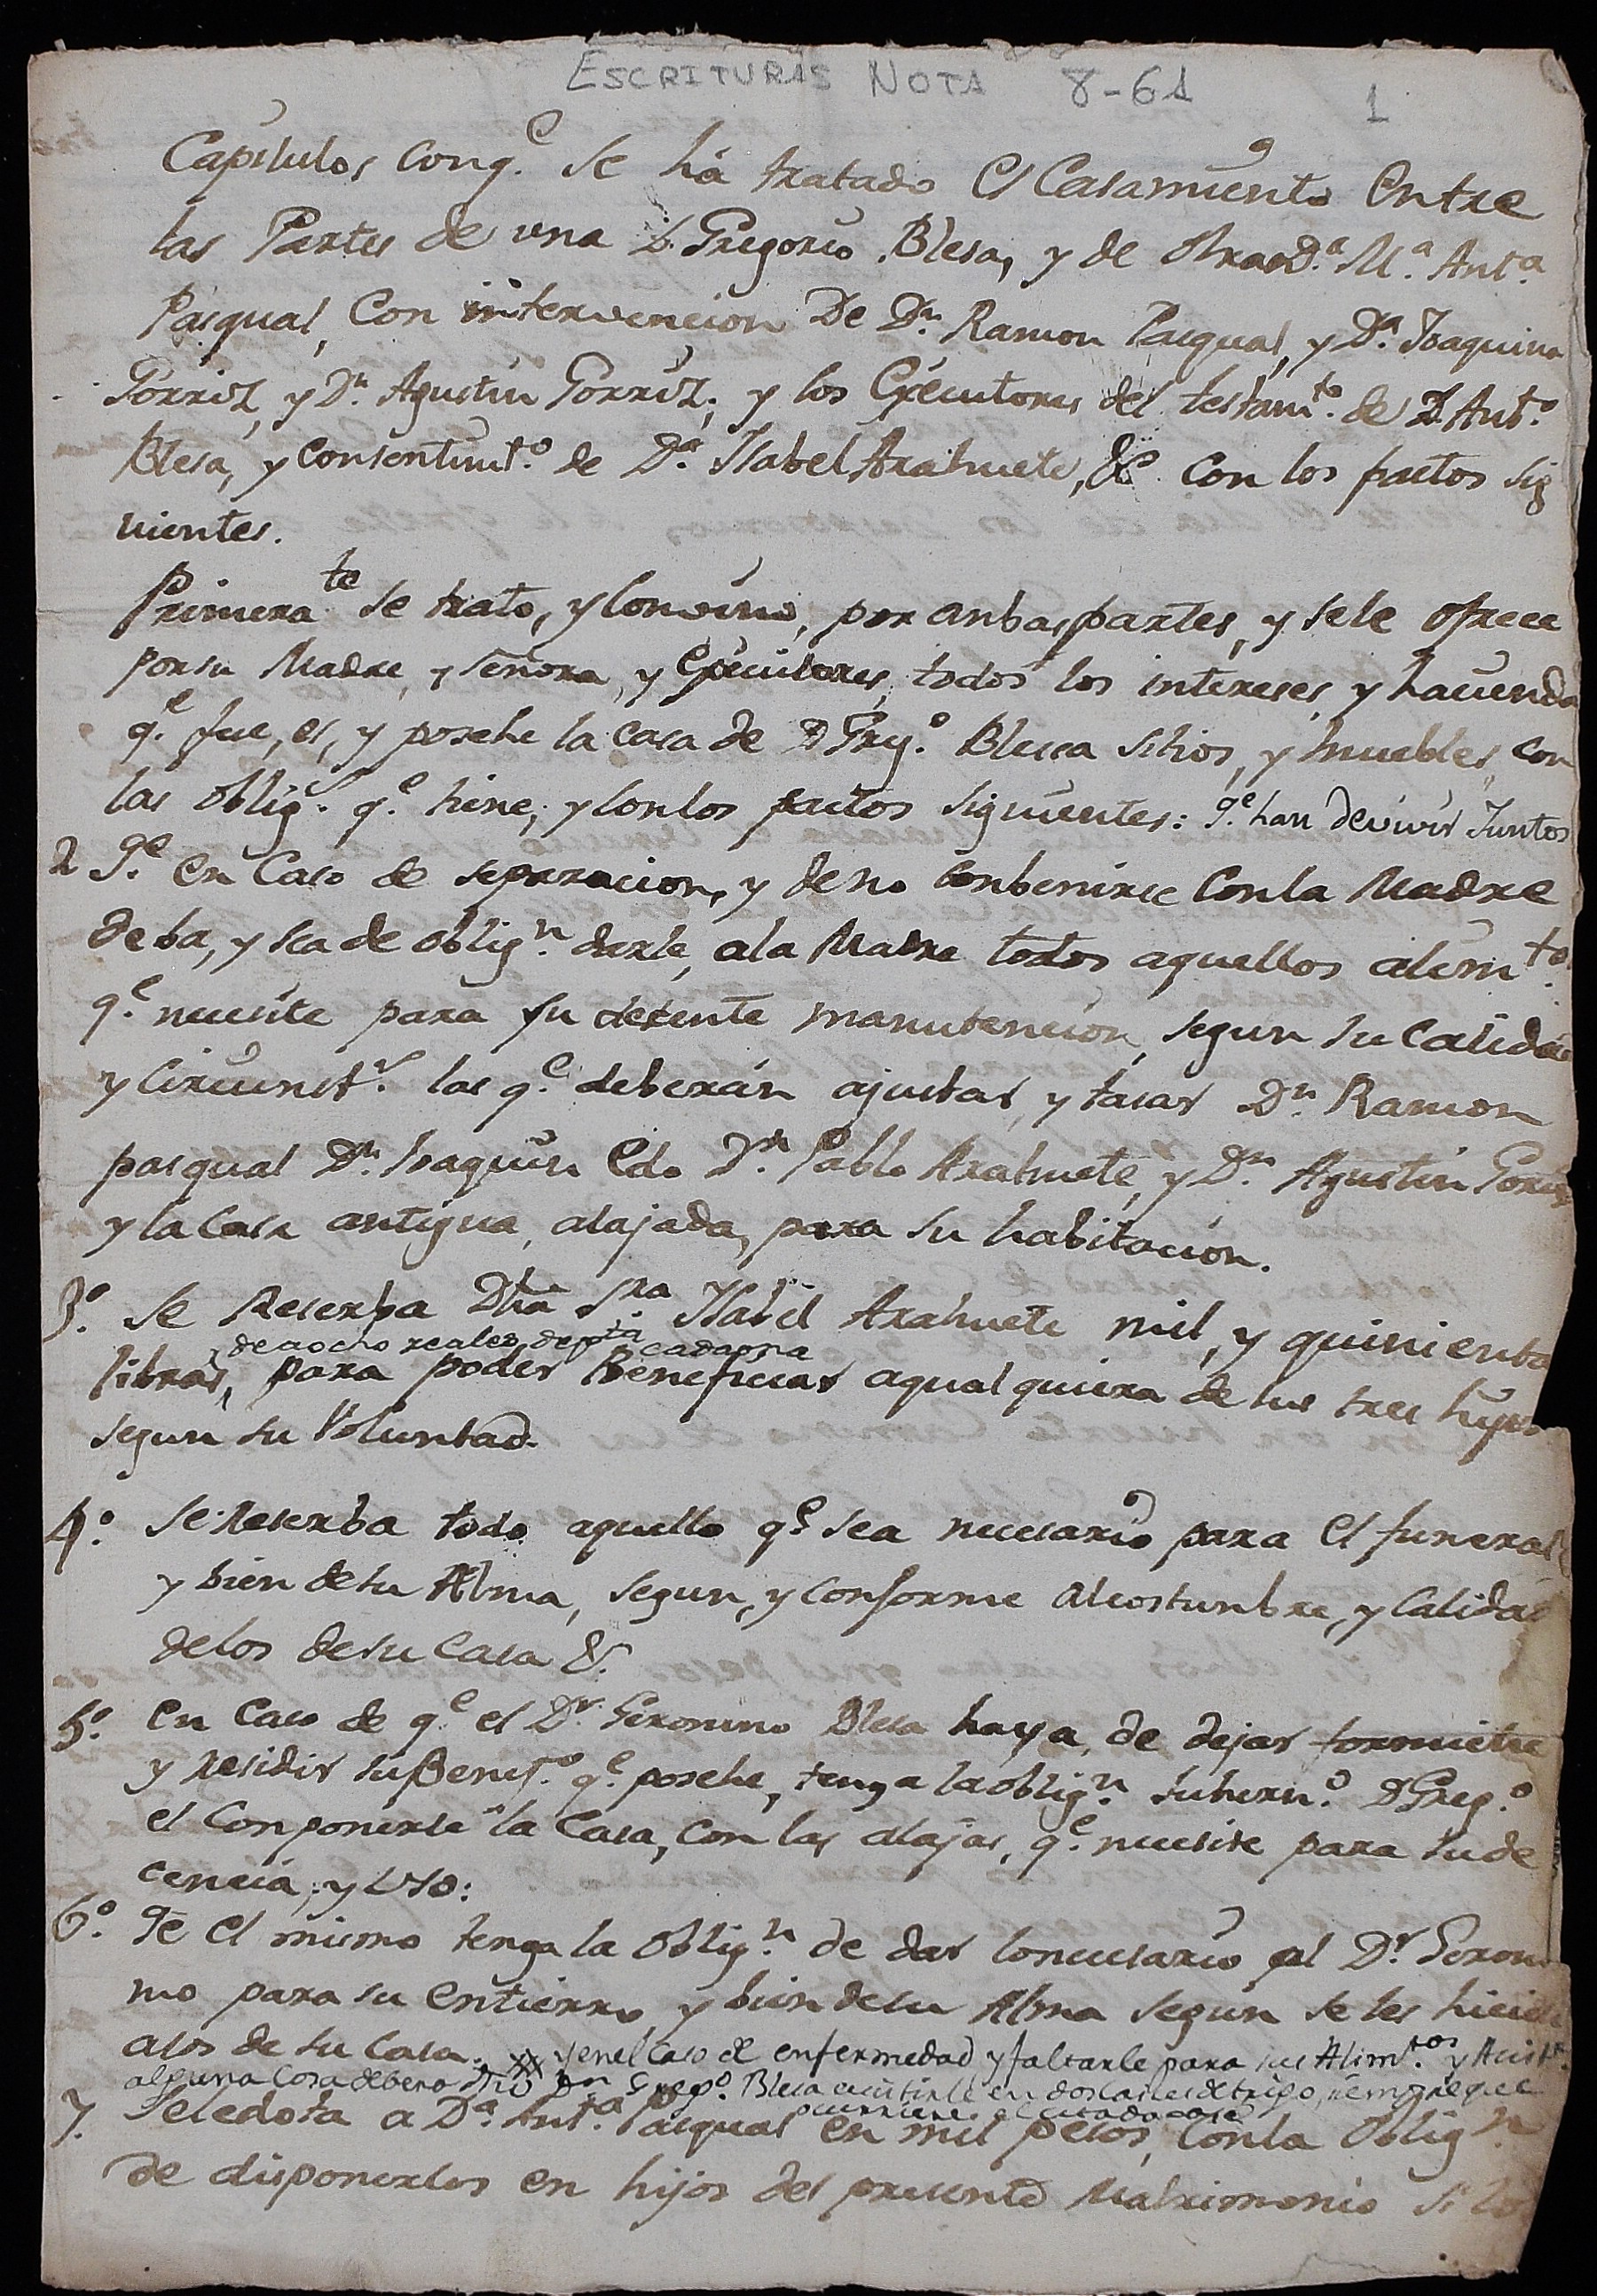 ESCRITURAS NOTA 8-61 1
Capitulos conq.e se há tratado el Casamiento Entre
las Partes de una D. Gregorio Blesa, y de otra D.a M.a Ant.a
Pasqual, Con intervencion De D.n Ramon Pasqual, y D.a Joaquina
Gorriz, y D.n Agustin Gorriz, y los Executores del testam.to de D. Ant.o
Blesa, y consentim.to de D.a Isabel Arahuete, &c. con los pactos sig
uientes.
Primera.te se trato, y convino, por anbas partes, y sele ofrece
por su Madre, y señora, y Executores, todos los intereses, y hacienda
q.e fue, es, y posehe la casa de D Greg.o Blessa sitios, y muebles, con
las oblig.s q.e tiene, y con los pactos siguientes: q.e han de vivir Juntos
2 q.e en Caso de separacion, y de no conbenirse con la Madre
deba, y sea de oblig.n darle, ala Madre todos aquellos alim.tos
q.e necesite para su decente manutencion, segun su calidad
y Circunst.s las q.e deberán ajustar, y tasar D.n Ramon
pasqual D.n Joaquin Edo D.n Pablo Arahuete, y D.n Agustin Gorriz
y la Casa antigua, alajada, para su habitacion.
3.o Se Reserba Dha S.ra Isabel Arahuete mil, y quinientas
de aocho reales de pta cada una
libras, para poder Beneficiar aqual quiera de sus tres hijos
segun su Voluntad.
4.o Se reserba todo aquello q.e sea necesario para el funeral
y bien de su Alma, segun, y conforme al costunbre, y Calidad
delos de su Casa &.
5.o en Caso de q.e el D.r Geronimo Blesa haya de dejar
y residir su Benef.o q.e posehe, tenga la oblig.n su hern.o D Greg.o
el Conponerle la Casa, con las alajas, q.e necesite para su de
cencia, y uso:
6.o Qe el mismo tenga la oblig.n de dar lo necesario al D.r Geroni
mo para su entierro, y bien de su Alma segun se les hiciese
alos de su Casa. y en el caso de enfermedad y faltarle para sus Alim.tos y Asist.
alguna cosa debera dho D.n Greg.o Blesa asistirle en dos caices de trigo, siempre que
ocurriere el citado caso
7. Sele dota a D.a Ant.a Pasqual en mil pesos, con la oblig.n
de disponerlos en hijos del presente Matrimonio si los